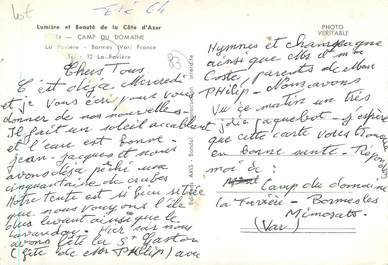 lot
Eté 64
Lumière et Beauté de la Côte d'Azur
14 — CAMP DU DOMAINE
La Favière - Bormes (Var) France
Tél : 12 La Favière
PHOTO
VÉRITABLE
83
Chers Tous
C'est déjà Mercredi
et je vous écris pour vous
donner de nos nouvelles.
Il fait un soleil accablant
et l'eau est bonne.
Jean-Jacques et
avons déjà pêché une
cinquantaine de crabes
Notre Tente est si bien située
que nous voyons l'île
du Levant ainsi que le
Lavandou. Hier soir nous
avons fêté la St Gaston
(fête de Mr PHILIP) avec
Hymnes et champagne
ainsi que Mr et Mme
Coste, parents de Mme
PHILIP. Nous avons
vu ce matin un très
joli paquebot. J'espère
que cette carte vous trouvera
en bonne santé. Répondez
moi à :
Camp du domaine
La Favière - Bormes les
Mimosats.
(Var)